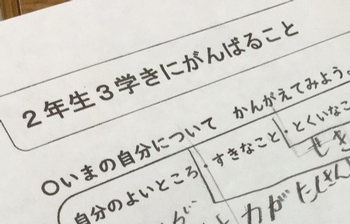 ２年生３学きにがんばること
○いまの自分について　かんがえてみよう。
自分のよいところ・すきなこと・とくいなこ
力がたくさん